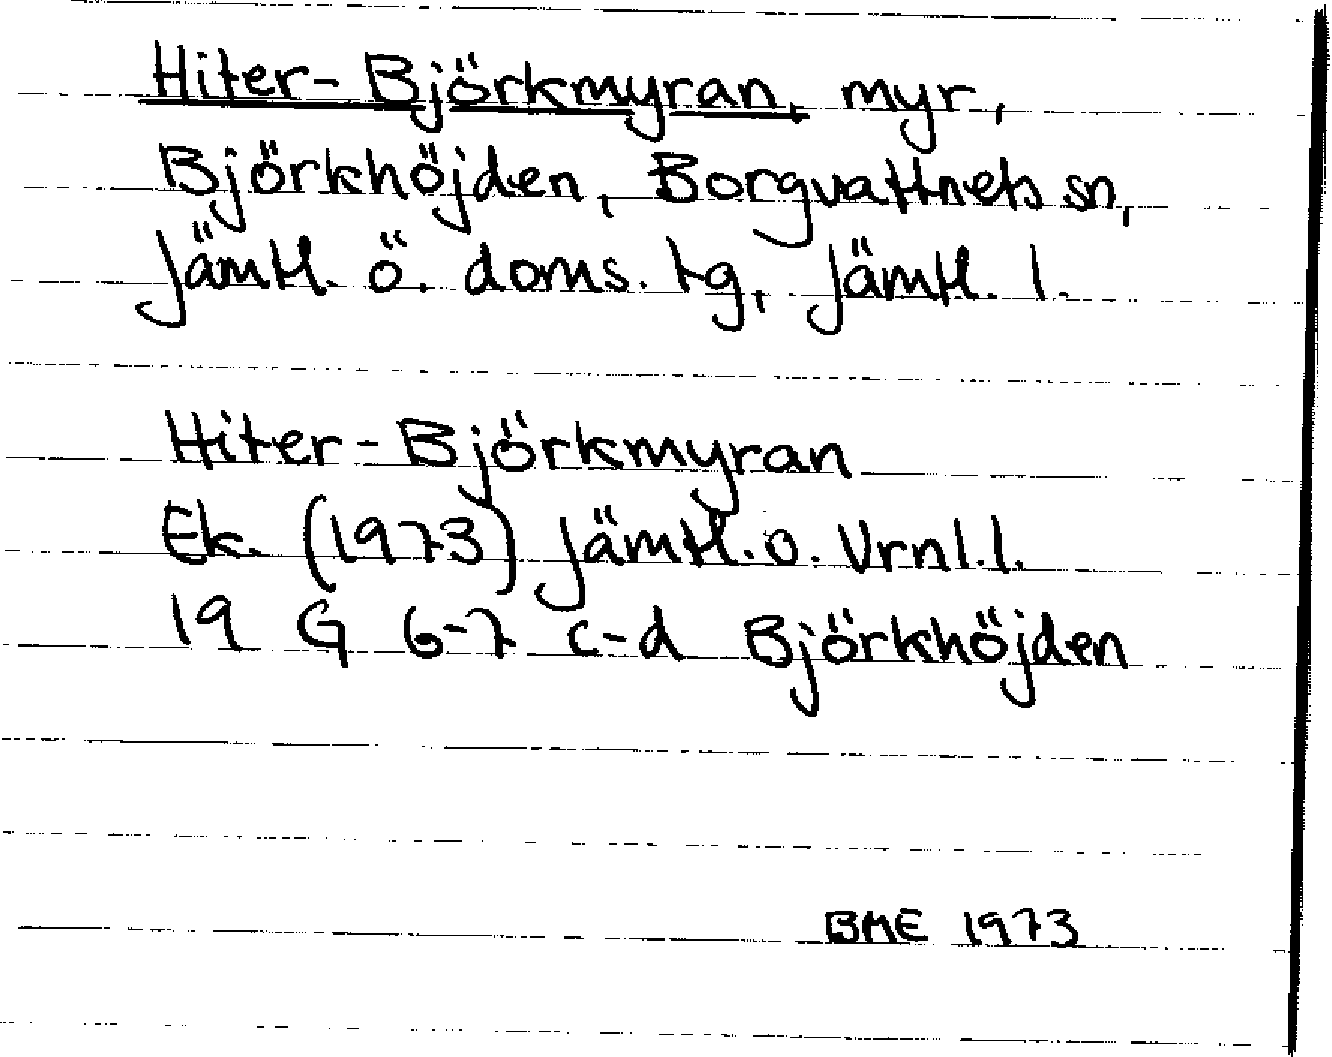 Hiter-Björkmyran, myr,
Björkhöjden, Borgvattnets sn,
Jämtl. ö. doms. tg, Jämtl. l.
Hiter-Björkmyran
Ek. (1973) Jämtl. o. Vrnl. l.
19 G 6-7 c-d Björkhöjden
BME 1973